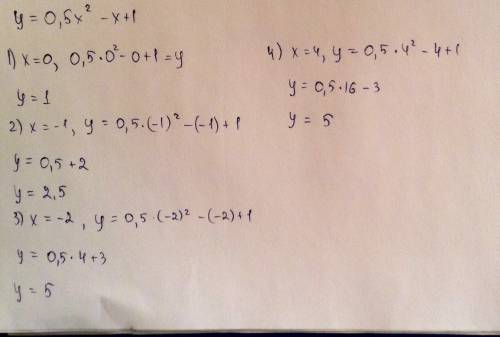 y = 0,5x² - x + 1
1) x=0, 0,5·0² - 0 + 1 = y
y = 1
2) x = -1, y = 0,5·(-1)² - (-1) + 1
y = 0,5 + 2
y = 2,5
3) x = -2, y = 0,5·(-2)² - (-2) + 1
y = 0,5·4 + 3
y = 5
4) x = 4, y = 0,5·4² - 4 + 1
y = 0,5·16 - 3
y = 5